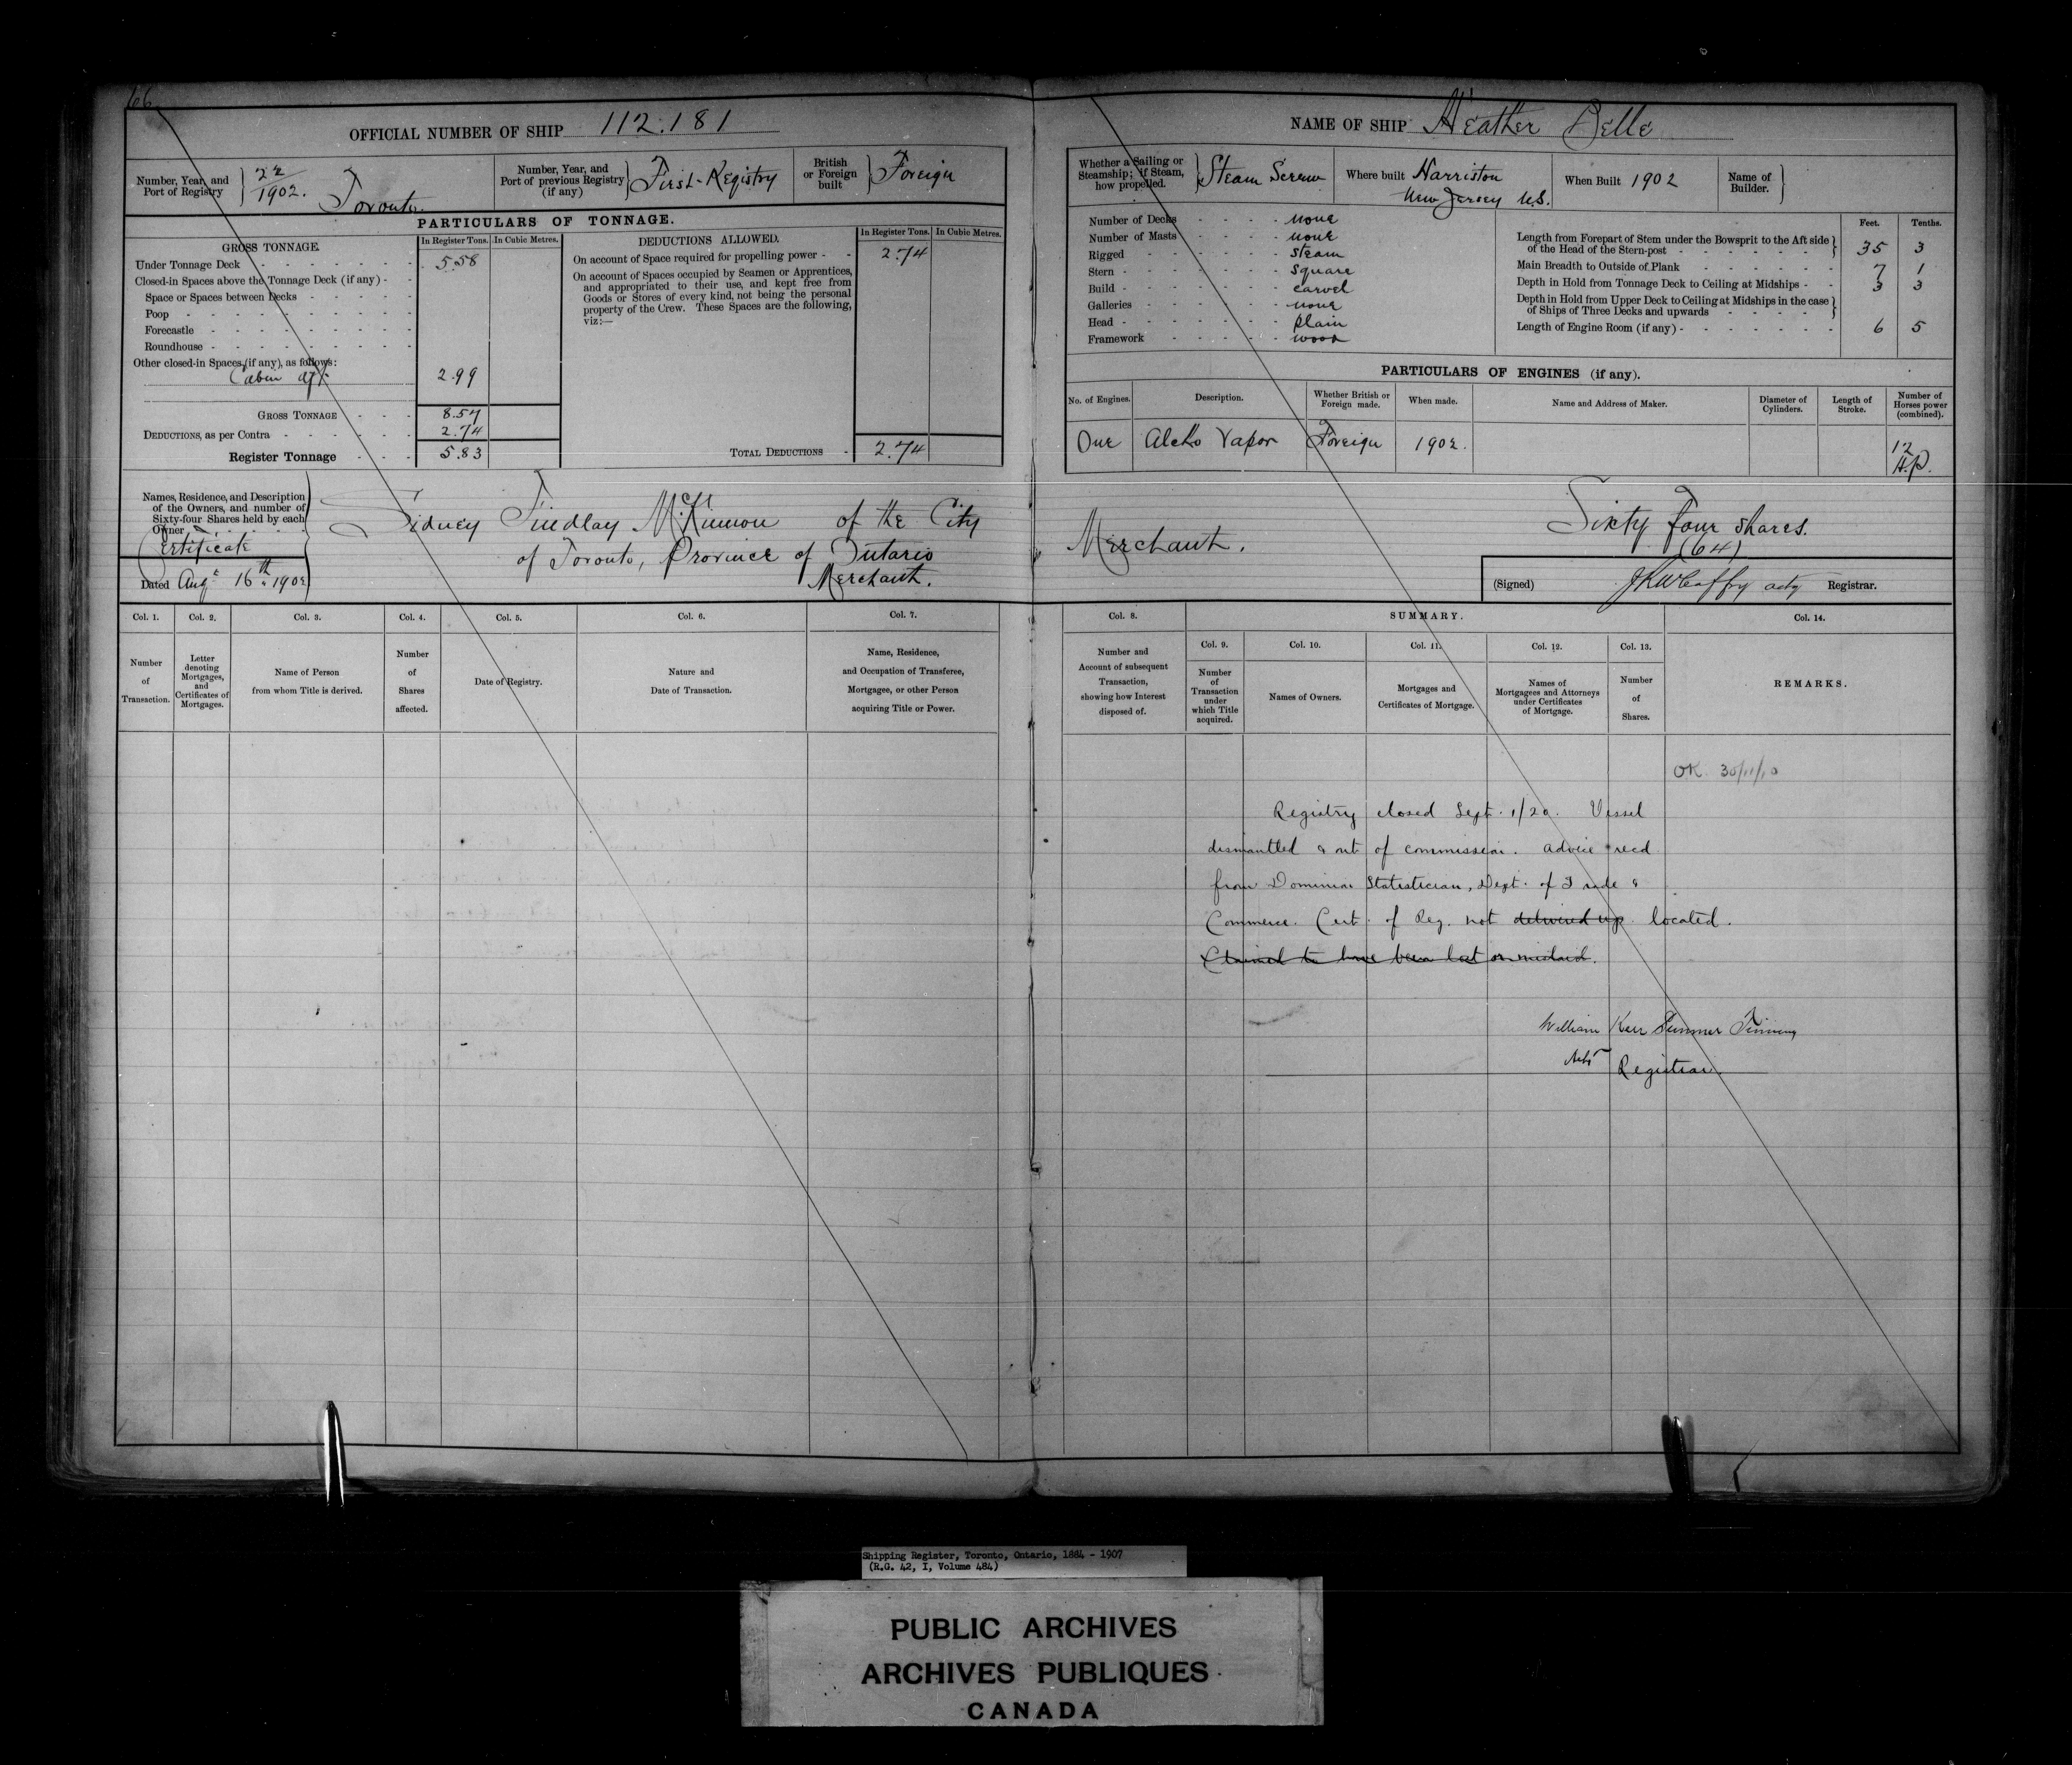 66
OFFICIAL NUMBER OF SHIP 112.181
Number, Year, and Port of Registry } 22/1902. Toronto
Number, Year, and Port of previous Registry (if any) } First Registry
British or Foreign built } Foreign
PARTICULARS OF TONNAGE.
GROSS TONNAGE.
In Register Tons. In Cubic Metres.
Under Tonnage Deck 5.58
Closed-in Spaces above the Tonnage Deck (if any) -
Space or Spaces between Decks
Poop
Forecastle
Roundhouse
Other closed-in Spaces, (if any), as follows:
Cabin aft 2.99
GROSS TONNAGE 8.57
DEDUCTIONS, as per Contra 2.74
Register Tonnage 5.83
DEDUCTIONS ALLOWED.
In Register Tons. In Cubic Metres.
On account of Space required for propelling power - 2.74
On account of Spaces occupied by Seamen or Apprentices,
and appropriated to their use, and kept free from
Goods or Stores of every kind, not being the personal
property of the Crew. These Spaces are the following,
viz:—
TOTAL DEDUCTIONS - 2.74
Names, Residence, and Description
of the Owners, and number of
Sixty-four Shares held by each
Owner
Certificate
Dated Augt 16th 1902
Sidney Findlay McKinnon of the City
of Toronto, Province of Ontario
Merchant.
Col. 1. Col. 2. Col. 3. Col. 4. Col. 5. Col. 6. Col. 7.
Number of Transaction.
Letter denoting Mortgages, and Certificates of Mortgages.
Name of Person from whom Title is derived.
Number of Shares affected.
Date of Registry.
Nature and Date of Transaction.
Name, Residence, and Occupation of Transferee, Mortgagee, or other Person acquiring Title or Power.
NAME OF SHIP Heather Belle
Whether a Sailing or Steamship; if Steam, how propelled. } Steam Screw
Where built Harriston New Jersey U.S.
When Built 1902
Name of Builder. }
Number of Decks none
Number of Masts none
Rigged steam
Stern square
Build carvel
Galleries none
Head plain
Framework wood
Feet. Tenths.
Length from Forepart of Stem under the Bowsprit to the Aft side
of the Head of the Stern-post } 35 3
Main Breadth to Outside of Plank 7 1
Depth in Hold from Tonnage Deck to Ceiling at Midships - 3 3
Depth in Hold from Upper Deck to Ceiling at Midships in the case
of Ships of Three Decks and upwards }
Length of Engine Room (if any) - 6 5
PARTICULARS OF ENGINES (if any).
No. of Engines. Description. Whether British or Foreign made. When made. Name and Address of Maker. Diameter of Cylinders. Length of Stroke. Number of Horses power (combined).
One Alcho Vapor Foreign 1902. 12 H.P.
Merchant.
Sixty four shares.
(64)
(Signed) acty Registrar.
Col. 8. SUMMARY. Col. 14.
Col. 9. Col. 10. Col. 11. Col. 12. Col. 13.
Number and Account of subsequent Transaction, showing how Interest disposed of.
Number of Transaction under which Title acquired.
Names of Owners.
Mortgages and Certificates of Mortgage.
Names of Mortgagees and Attorneys under Certificates of Mortgage.
Number of Shares.
REMARKS.
OK. 30/11/10
Registry closed Sept. 1/20. Vessel
dismantled & out of commission. Advice recd
from Dominion Statistician, Dept. of Trade &
Commerce. Cert. of Reg. not delivered up located.
Claimed to have been lost or mislaid.
William Kerr
Registrar.
Shipping Register, Toronto, Ontario, 1884 - 1907
(R.G. 42, I, Volume 484)
PUBLIC ARCHIVES
ARCHIVES PUBLIQUES
CANADA